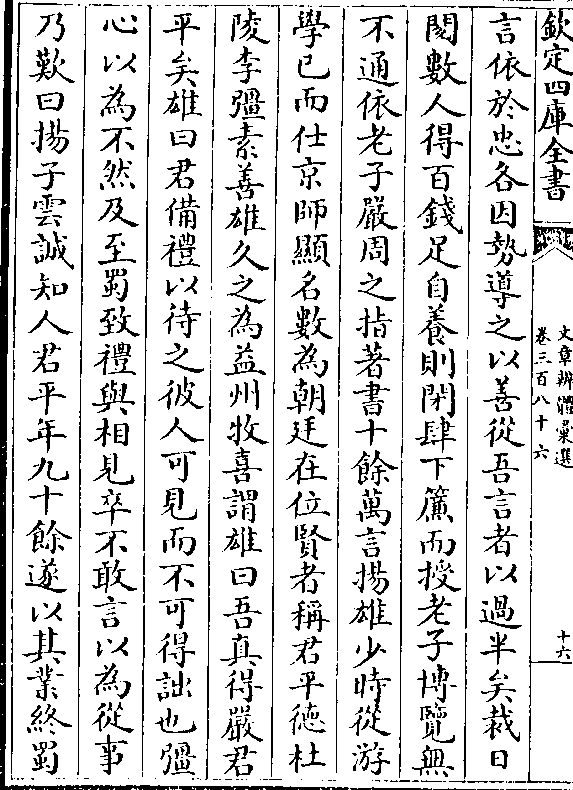 欽定四庫全書
文章辨體彙選
卷三百八十六
十六
言依於忠各因勢導之以善從吾言者以過半矣裁日
閱數人得百錢足自養則閉肆下簾而授老子博覽無
不通依老子嚴周之指著書十餘萬言揚雄少時從游
學已而仕京師顯名數為朝廷在位賢者稱君平德杜
陵李彊素善雄久之為益州牧喜謂雄曰吾真得嚴君
平矣雄曰君備禮以待之彼人可見而不可得詘也彊
心以為不然及至蜀致禮與相見卒不敢言以為從事
乃歎曰揚子雲誠知人君平年九十餘遂以其業終蜀